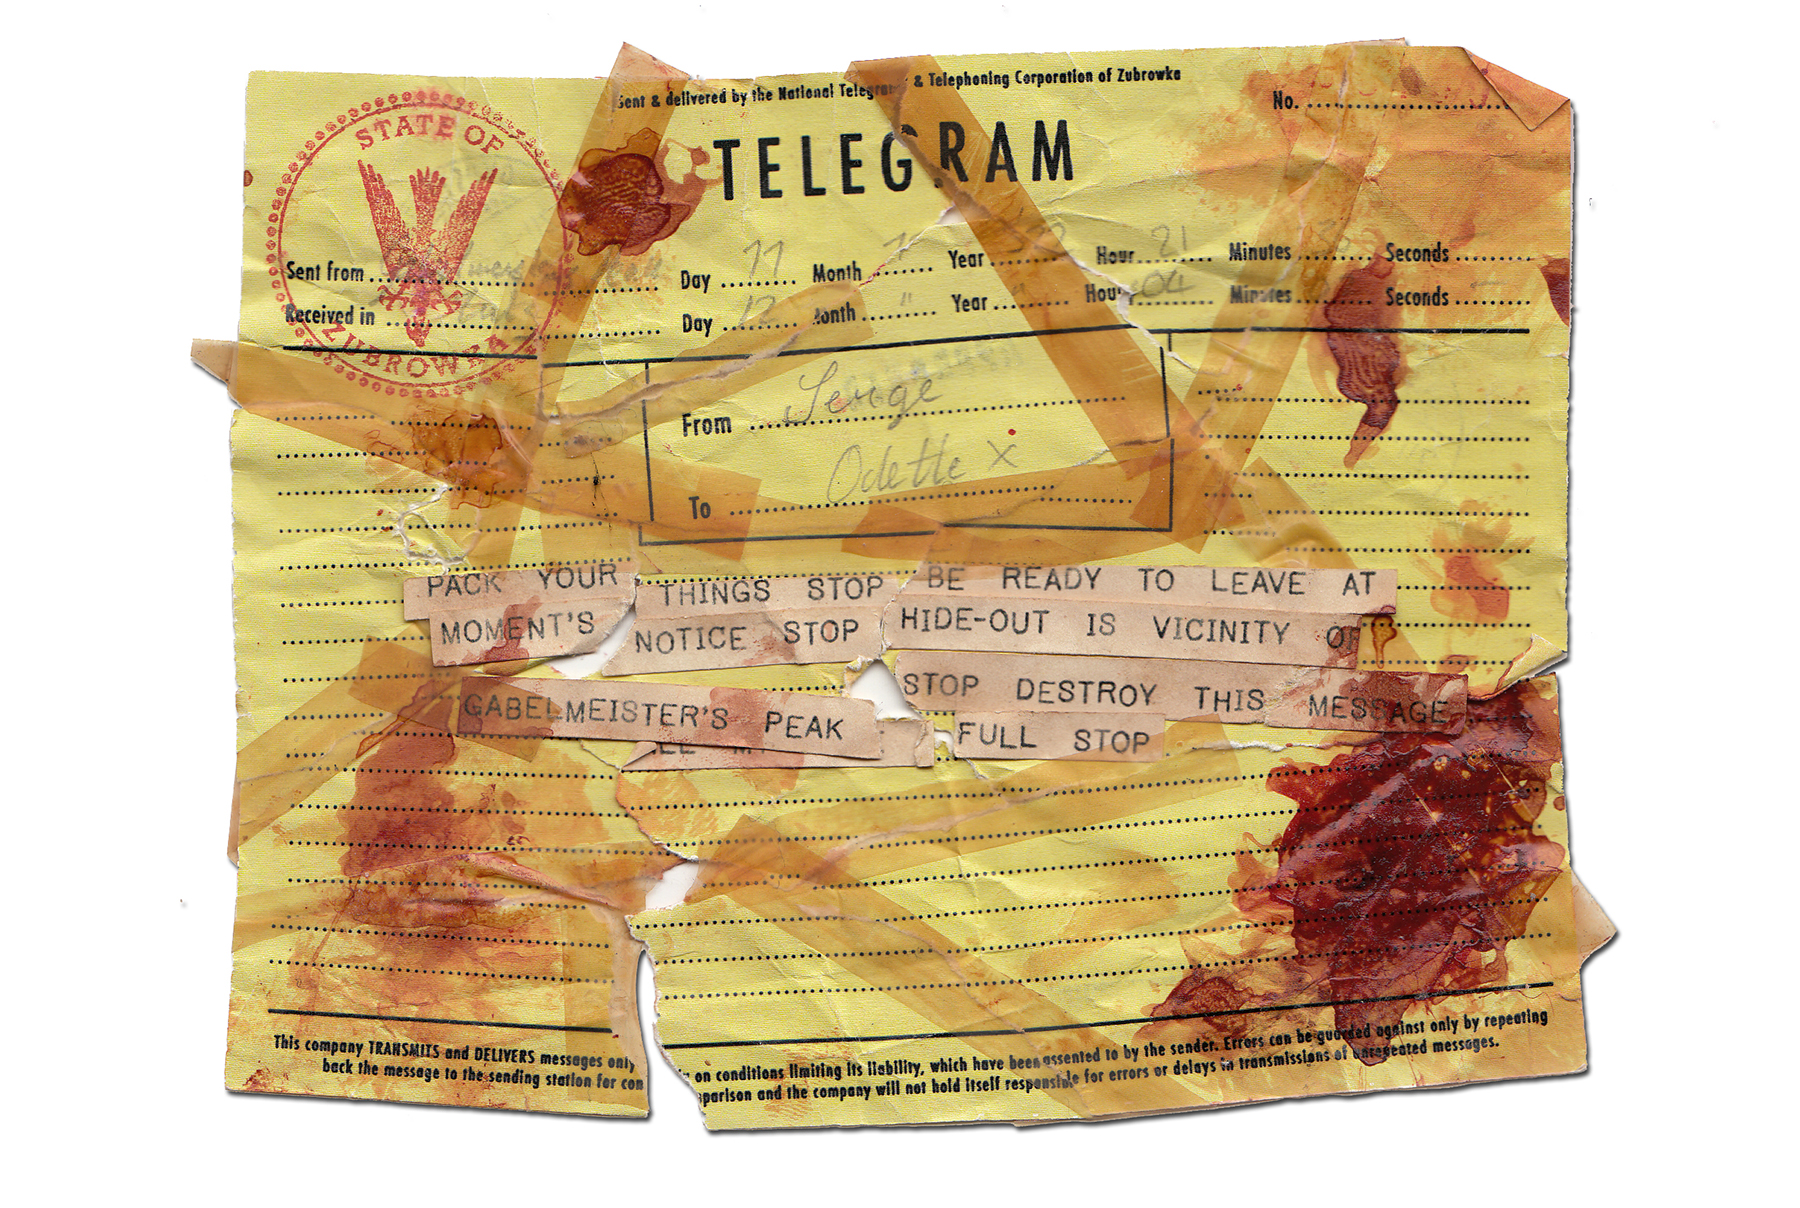 Sent & delivered by the National Telegra & Telephoning Corporation of Zubrowka
No.
TELEGRAM
STATE OF
ZUBROWKA
Sent from Day 11 Month Year Hour 21 Minutes Seconds
Received in Day 12 Month " Year Hour 04 Minutes Seconds
From Serge
To Odette x
PACK YOUR THINGS STOP BE READY TO LEAVE AT
MOMENT'S NOTICE STOP HIDE-OUT IS VICINITY OF
GABELMEISTER'S PEAK STOP DESTROY THIS MESSAGE
FULL STOP
This company TRANSMITS and DELIVERS messages only on conditions limiting its liability, which have been assented to by the sender. Errors can be guarded against only by repeating
back the message to the sending station for comparison and the company will not hold itself responsible for errors or delays in transmissions of unrepeated messages.